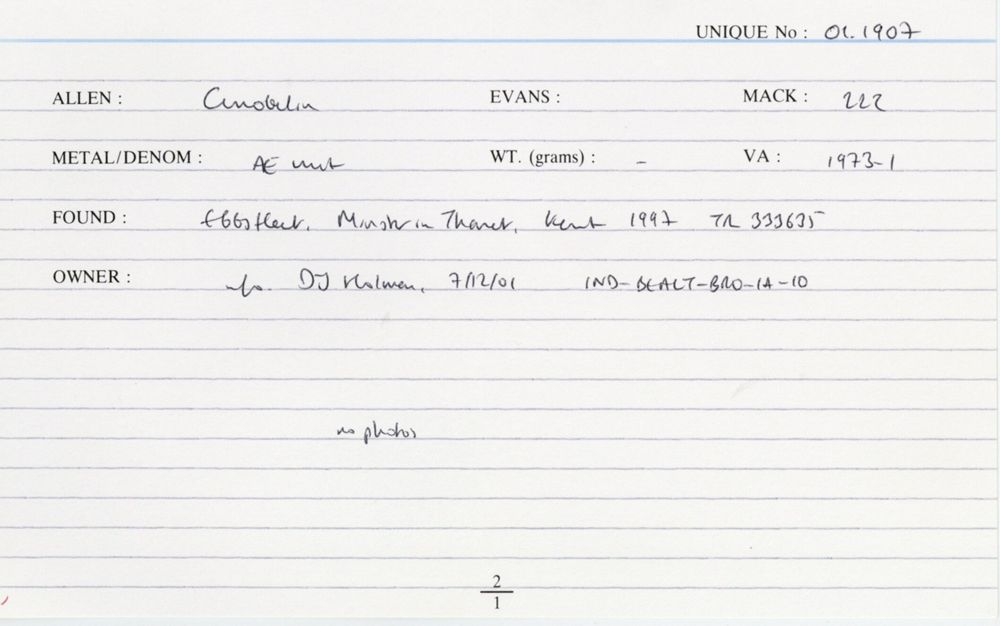 UNIQUE No : 01.1907
ALLEN : Cunobelin EVANS : MACK : 222
METAL/DENOM : AE unit WT. (grams) : - VA : 1973-1
FOUND : Ebbsfleet, Minster in Thanet, Kent 1997 TR 333635
OWNER : info. DJ Holman, 7/12/01 IND-BEALT-BRO-IA-10
no photos
2
1